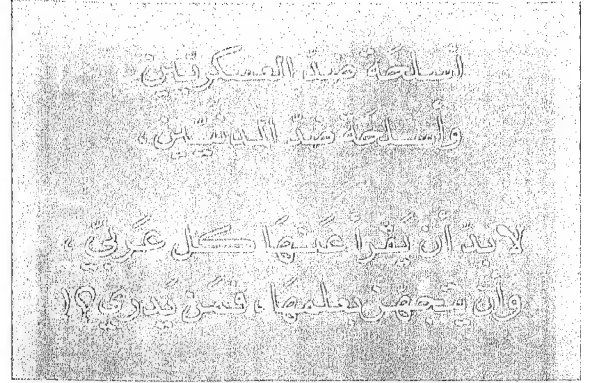 أسلحَة ضدّ العسكريّين
وأسلحَة ضدّ المدنيّين ،
لا بدّ أن يَقرأ عَنهَا كل عَربيّ ،
وأن بعلمهَا ، فمَن يَدري ؟!